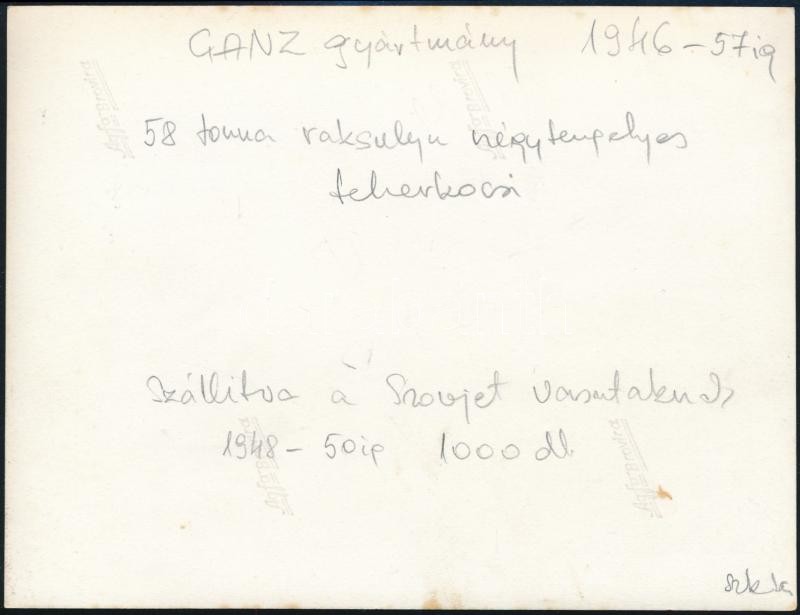 GANZ gyártmány 1946-57ig
58 tonna raksulyu négytengelyes
teherkocsi
Szállitva a Szovjet vasutaknak
1948-50ig 1000 db.
Agfa-Brovira
Agfa-Brovira
Agfa-Brovira
Agfa-Brovira